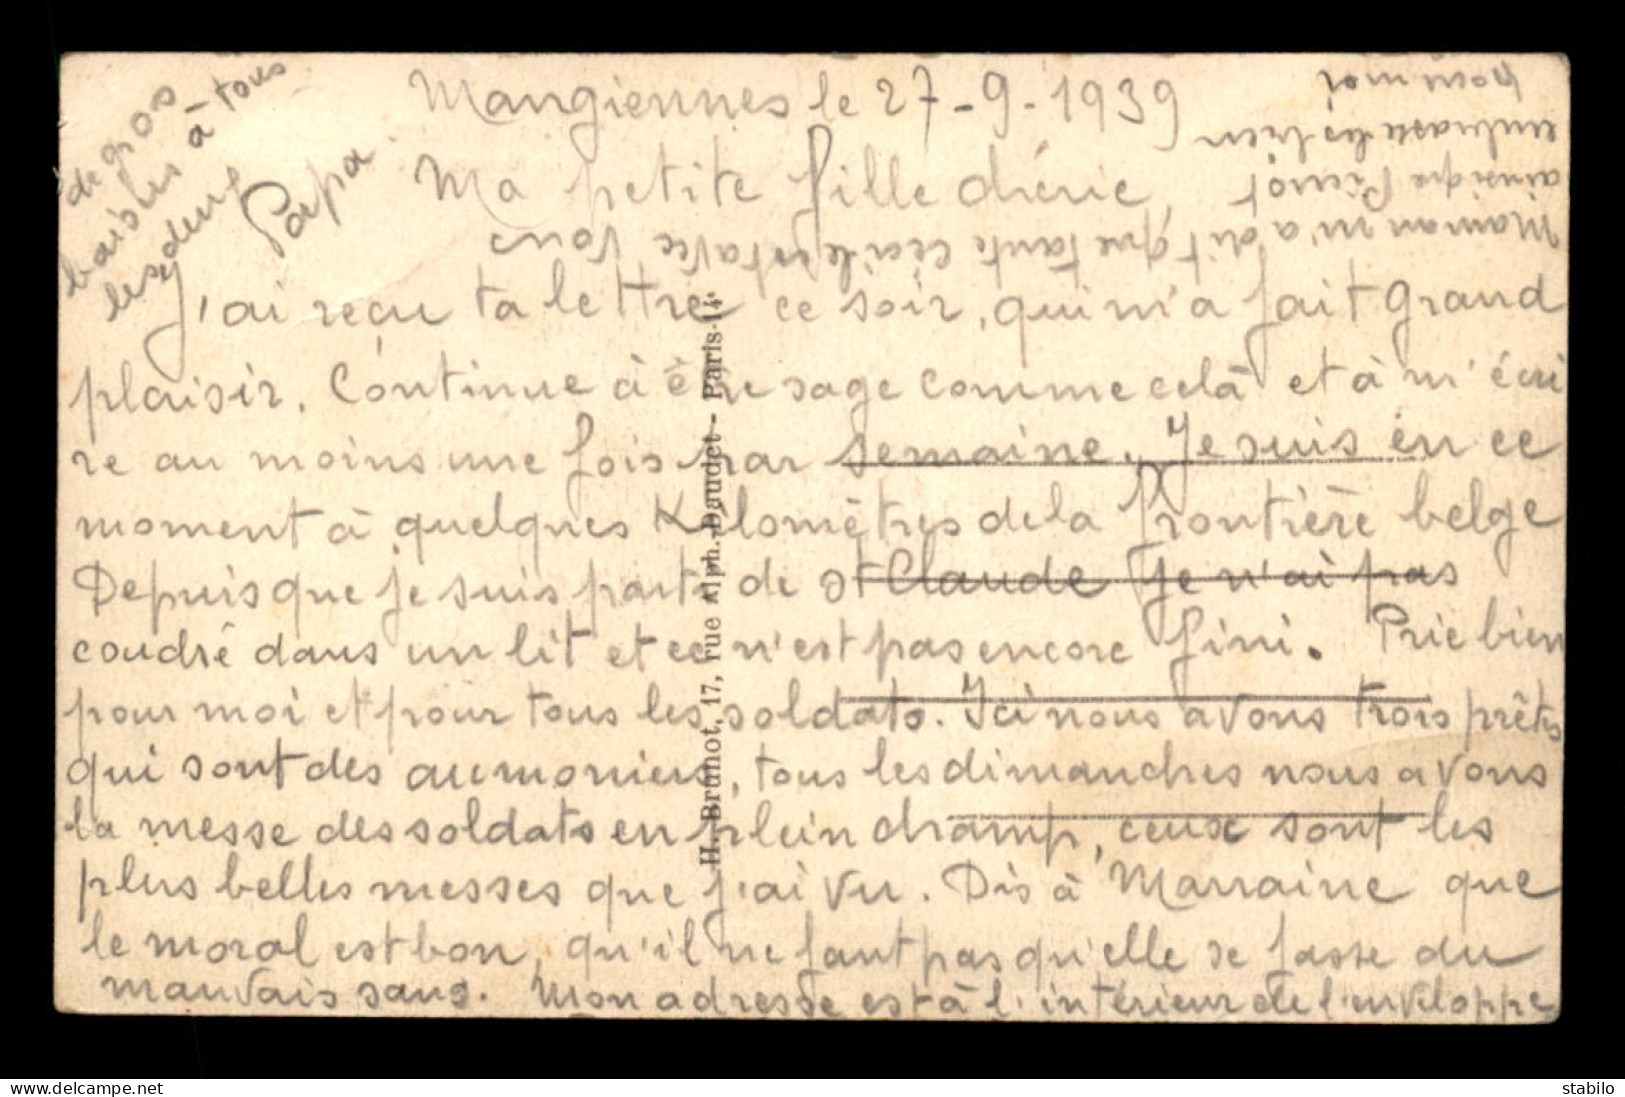 Mangiennes le 27-9-1939
Ma petite fille chérie
J'ai reçu ta lettre ce soir, qui m'a fait grand
plaisir. Continue à être sage comme celà et à m'écri
re au moins une fois par semaine. Je suis en ce
moment à quelques Kilomètres de la frontière belge
Depuis que je suis parti de St Claude je n'ai pas
couché dans un lit et ce n'est pas encore fini. Prie bien
pour moi et pour tous les soldats. Ici nous avons trois prêtres
qui sont des aumoniers, tous les dimanches nous avons
la messe des soldats en plein champ, ceux sont les
plus belles messes que j'ai vu. Dis à Marraine que
le moral est bon, qu'il ne faut pas qu'elle se fasse du
mauvais sang. Mon adresse est à l'intérieur de l'enveloppe
Maman m'a dit que tante Cécile est avec vous
ainsi que Pierrot
embrasse les bien
pour moi
de gros
baisers à tous
les deux
Papa.
H. Brunot, 17, rue Alph.-Daudet - Paris-14e
stabilo